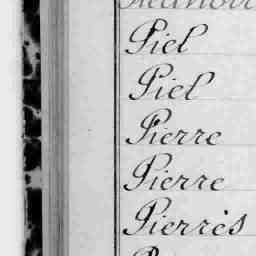 Piel
Piel
Pierre
Pierre
Pierrès